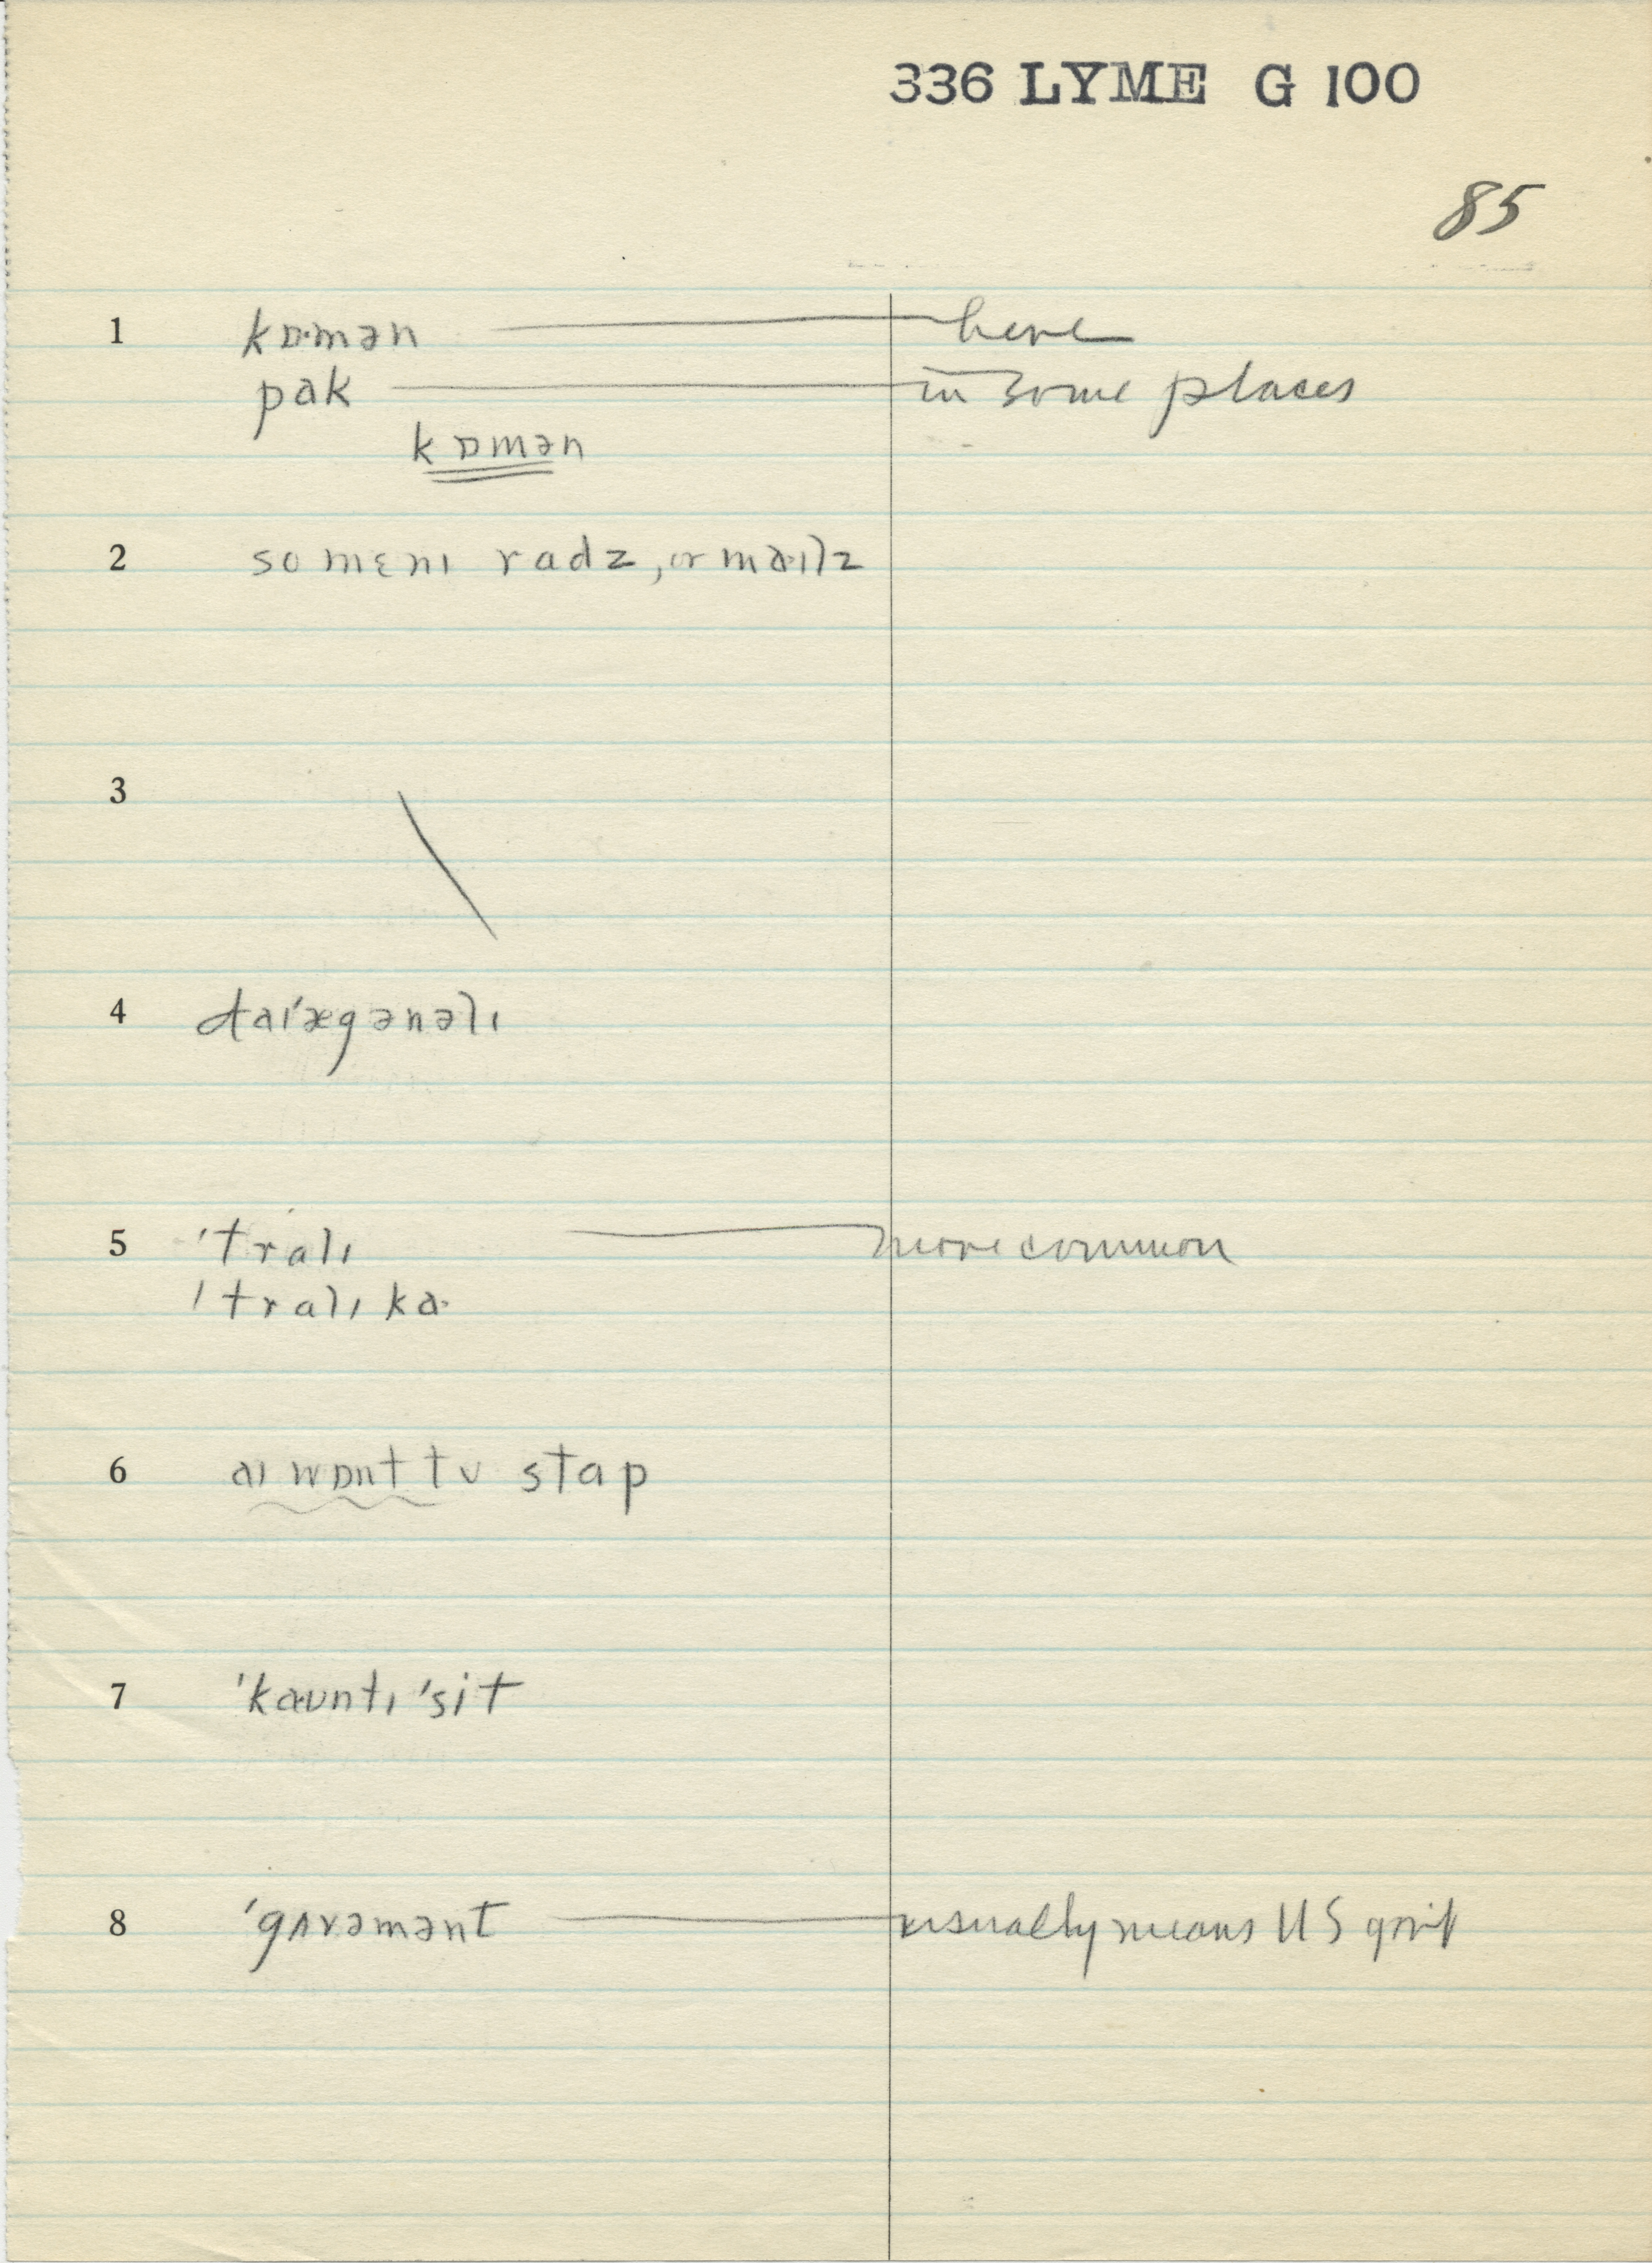 336 LYME G 100
85
1 kɒ·mən — here
pak — in some places
kɒmən
2 so mɛnɪ radz, or ma·ɪlz
3
4 daɪ'ægənəlɪ
5 'tralɪ — more common
'tralɪ ka·
6 aɪ wɒnt tʊ stap
7 'kaʊntɪ 'sit
8 'gʌvəmənt — usually means US gov't